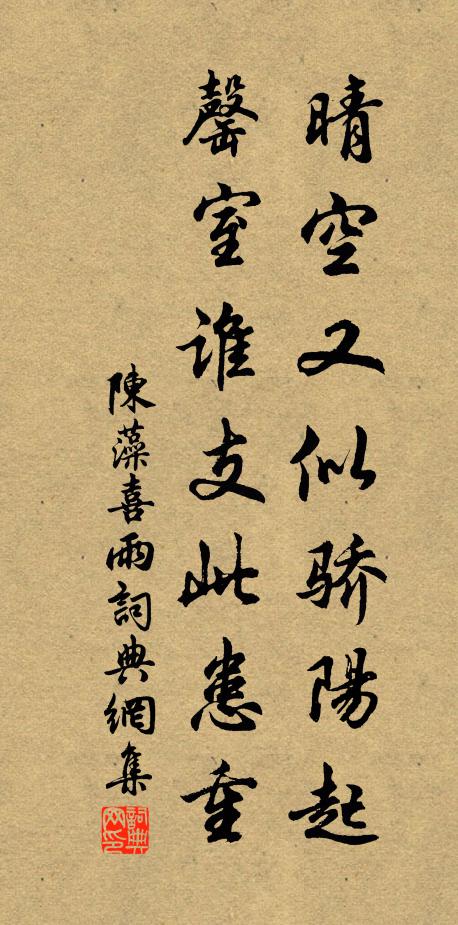 晴空又似骄陽起
罄室谁支此患重
陳藻喜雨詞典網集
詞典网印